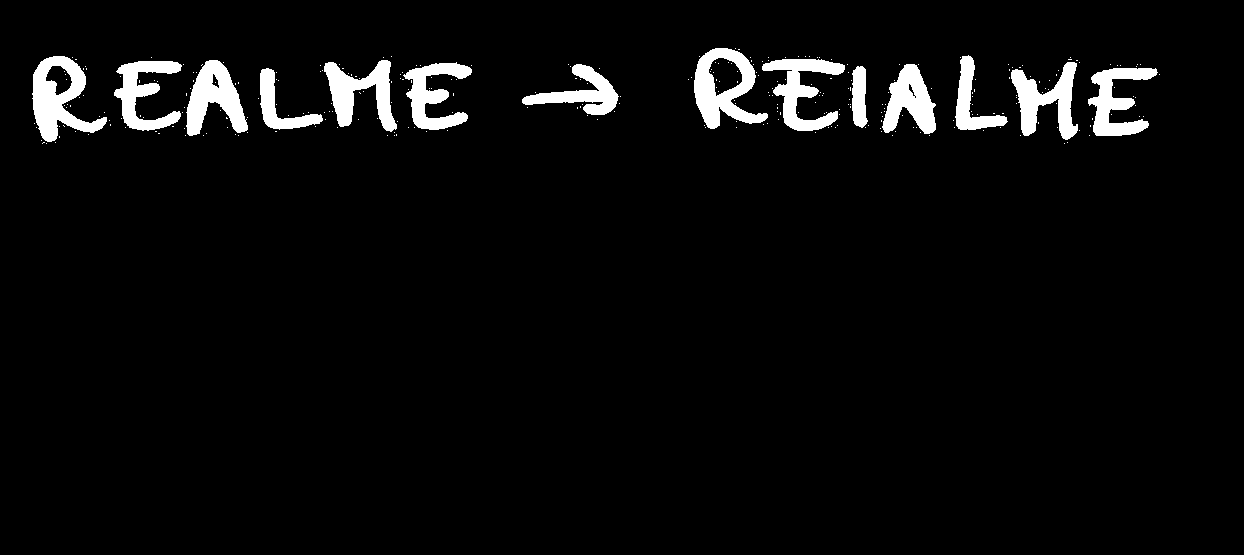 REALME → REIALME